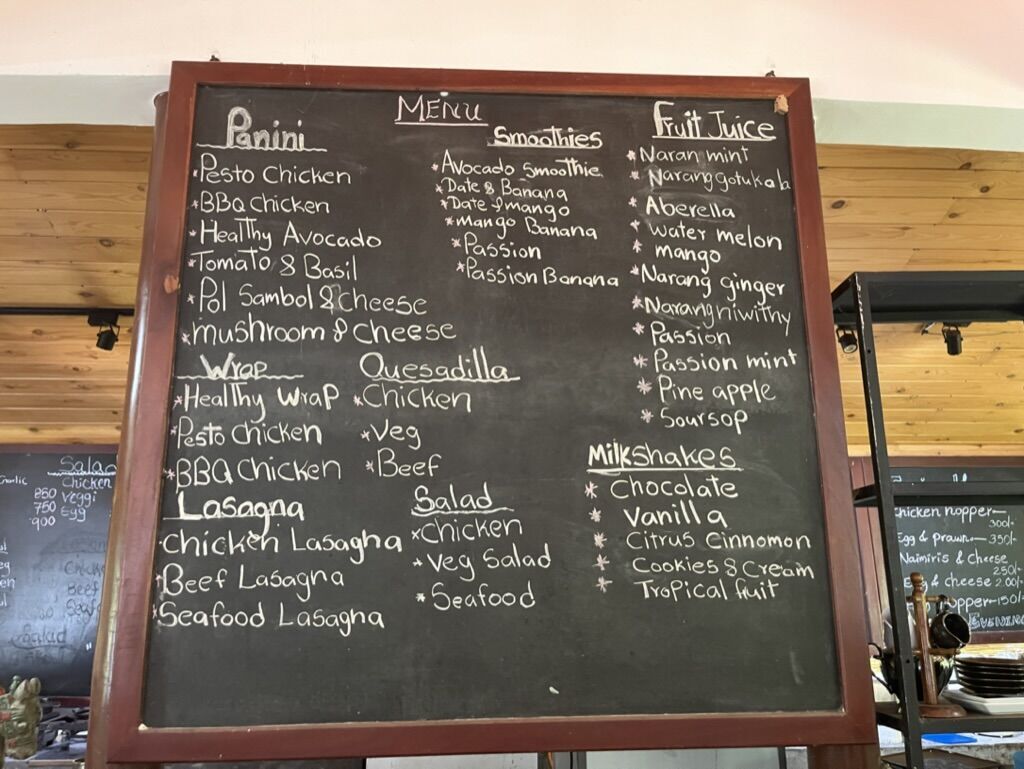 MENU
Panini
Pesto Chicken
BBQ Chicken
Healthy Avocado
Tomato & Basil
Pol Sambol & cheese
mushroom & Cheese
Wrap
Healthy Wrap
Pesto chicken
BBQ Chicken
Quesadilla
Chicken
Veg
Beef
Lasagna
Chicken Lasagna
Beef Lasagna
Seafood Lasagna
Salad
Chicken
Veg Salad
Seafood
Smoothies
Avocado Smoothie
Date & Banana
Date & mango
mango Banana
Passion
Passion Banana
Fruit Juice
Naran mint
Narang gotukola
Aberella
Water melon
mango
Narang ginger
Narang niwithy
Passion
Passion mint
Pine apple
Soursop
Milkshakes
Chocolate
Vanilla
Citrus Cinnomon
Cookies & Cream
Tropical fruit
Salad
Chicken
850 Veggi
750 Egg
900
Salad
chicken hopper
300/-
Egg & prawn 350/-
Naimiris & Cheese
250/-
& cheese 200/-
hopper 150/-